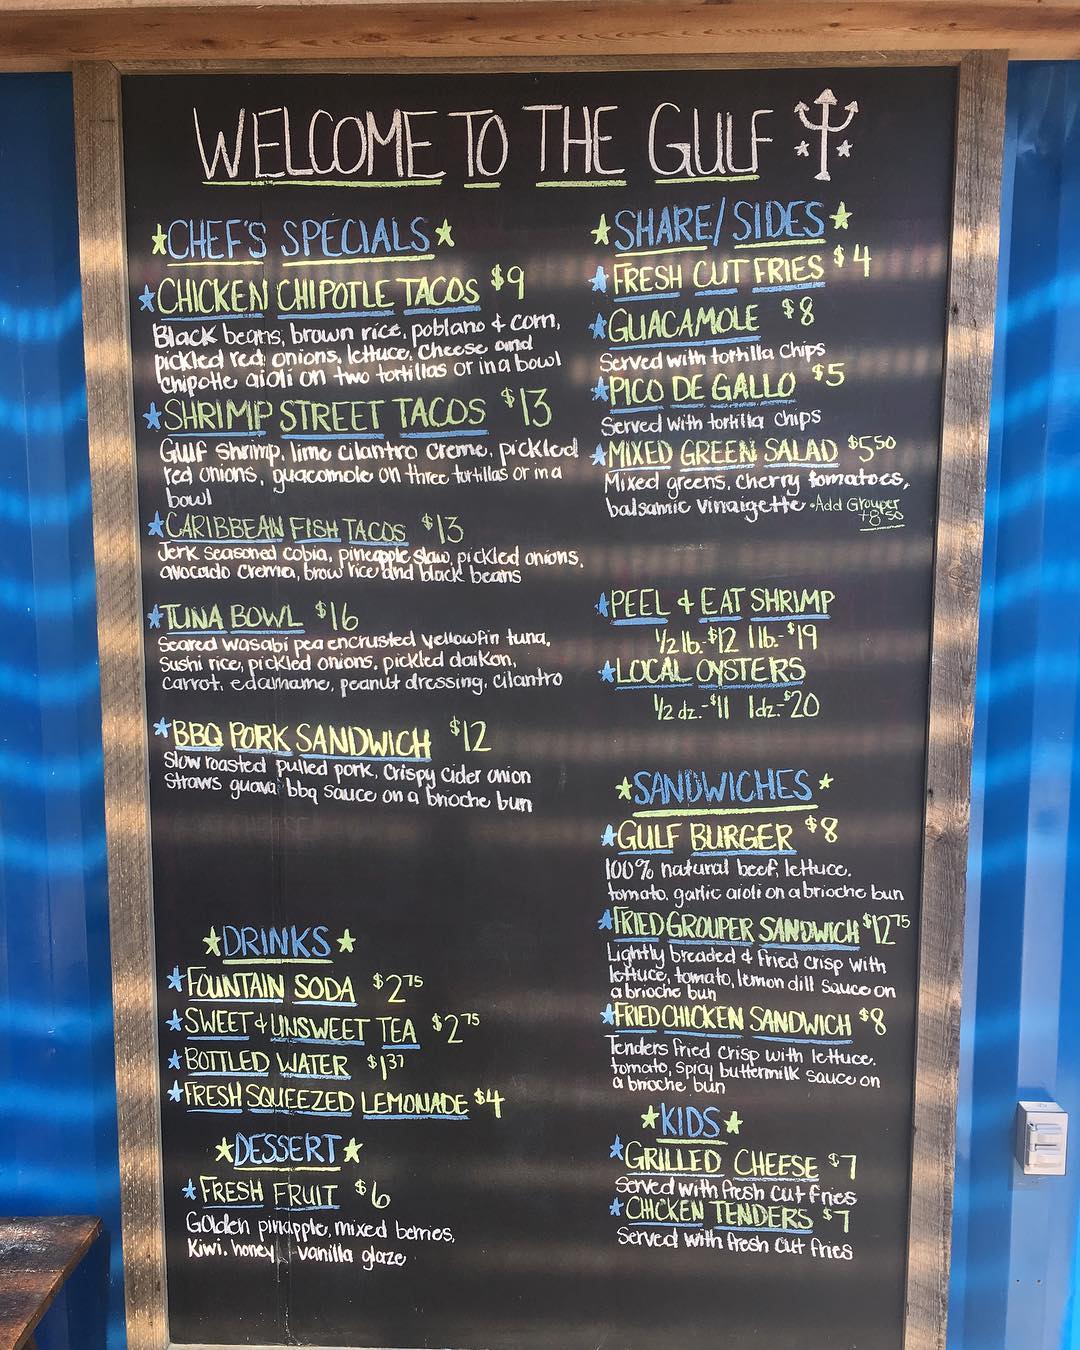 WELCOME TO THE GULF
CHEF'S SPECIALS
CHICKEN CHIPOTLE TACOS $9
Black beans, brown rice, poblano & corn,
pickled red onions, lettuce, cheese and
chipotle aioli on two tortillas or in a bowl
SHRIMP STREET TACOS $13
Gulf shrimp, lime cilantro creme, pickled
red onions, guacamole on three tortillas or in a
bowl
CARIBBEAN FISH TACOS $13
Jerk seasoned cobia, pineapple slaw, pickled onions,
avocado crema, brow rice and black beans
TUNA BOWL $16
Seared wasabi pea encrusted yellowfin tuna,
Sushi rice, pickled onions, pickled daikon,
carrot, edamame, peanut dressing, cilantro
BBQ PORK SANDWICH $12
Slow roasted pulled pork, crispy cider onion
straws guava bbq sauce on a brioche bun
DRINKS
FOUNTAIN SODA $2.75
SWEET & UNSWEET TEA $2.75
BOTTLED WATER $1.37
FRESH SQUEEZED LEMONADE $4
DESSERT
FRESH FRUIT $6
Golden pinapple, mixed berries,
Kiwi, honey, vanilla glaze
SHARE/SIDES
FRESH CUT FRIES $4
GUACAMOLE $8
Served with tortilla chips
PICO DE GALLO $5
Served with tortilla chips
MIXED GREEN SALAD $5.50
Mixed greens, cherry tomatoes,
balsamic vinaigette •Add Grouper
+8.50
PEEL & EAT SHRIMP
1/2 lb.-$12 1 lb.-$19
LOCAL OYSTERS
1/2 dz.-$11 1dz.-$20
SANDWICHES
GULF BURGER $8
100% natural beef, lettuce,
tomato, garlic aioli on a brioche bun
FRIED GROUPER SANDWICH $12.75
Lightly breaded & fried crisp with
lettuce, tomato, lemon dill sauce on
a brioche bun
FRIED CHICKEN SANDWICH $8
Tenders fried crisp with lettuce,
tomato, spicy buttermilk sauce on
a brioche bun
KIDS
GRILLED CHEESE $7
Served with fresh cut fries
CHICKEN TENDERS $7
Served with fresh cut fries